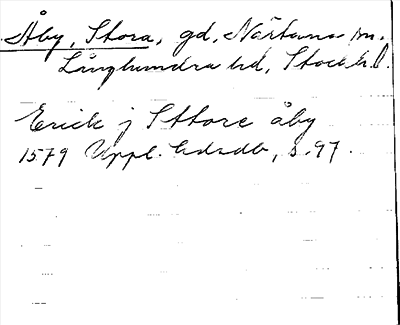 Åby, Stora, gd, Närtuna sn.
Långhundra hd, Stockh.l.
Erick j Sttore åby
1579 Uppl. hdsdb, s. 97.